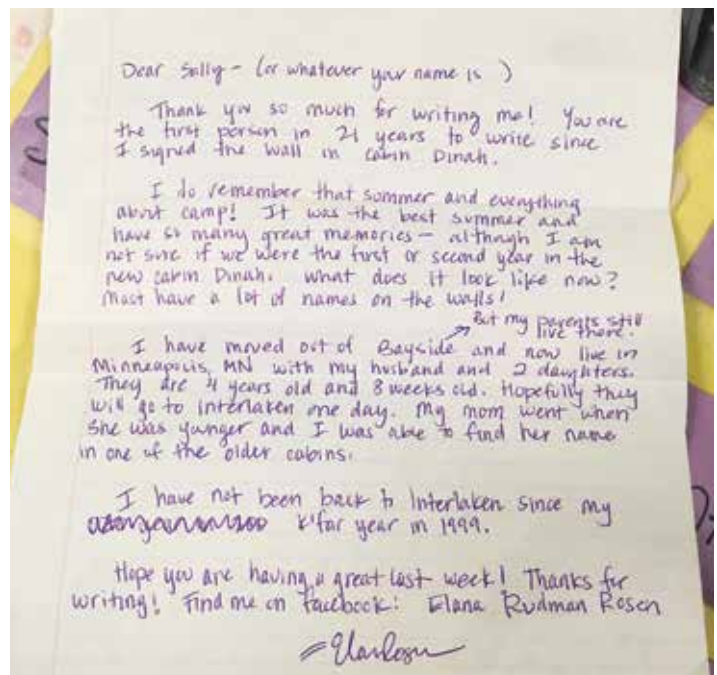 Dear Sally - (or whatever your name is )
Thank you so much for writing me! You are
the first person in 21 years to write since
I signed the wall in cabin Dinah.
I do remember that summer and everything
about camp! It was the best summer and
have so many great memories - although I am
not sure if we were the first or second year in the
new cabin Dinah. What does it look like now?
Must have a lot of names on the walls!
But my parents still
live there.
I have moved out of Bayside and now live in
Minneapolis, MN with my husband and 2 daughters.
They are 4 years old and 8 weeks old. Hopefully they
will go to Interlaken one day. My mom went when
she was younger and I was able to find her name
in one of the older cabins.
I have not been back to Interlaken since my
K'far year in 1999.
Hope you are having a great last week! Thanks for
writing! Find me on Facebook: Elana Rudman Rosen